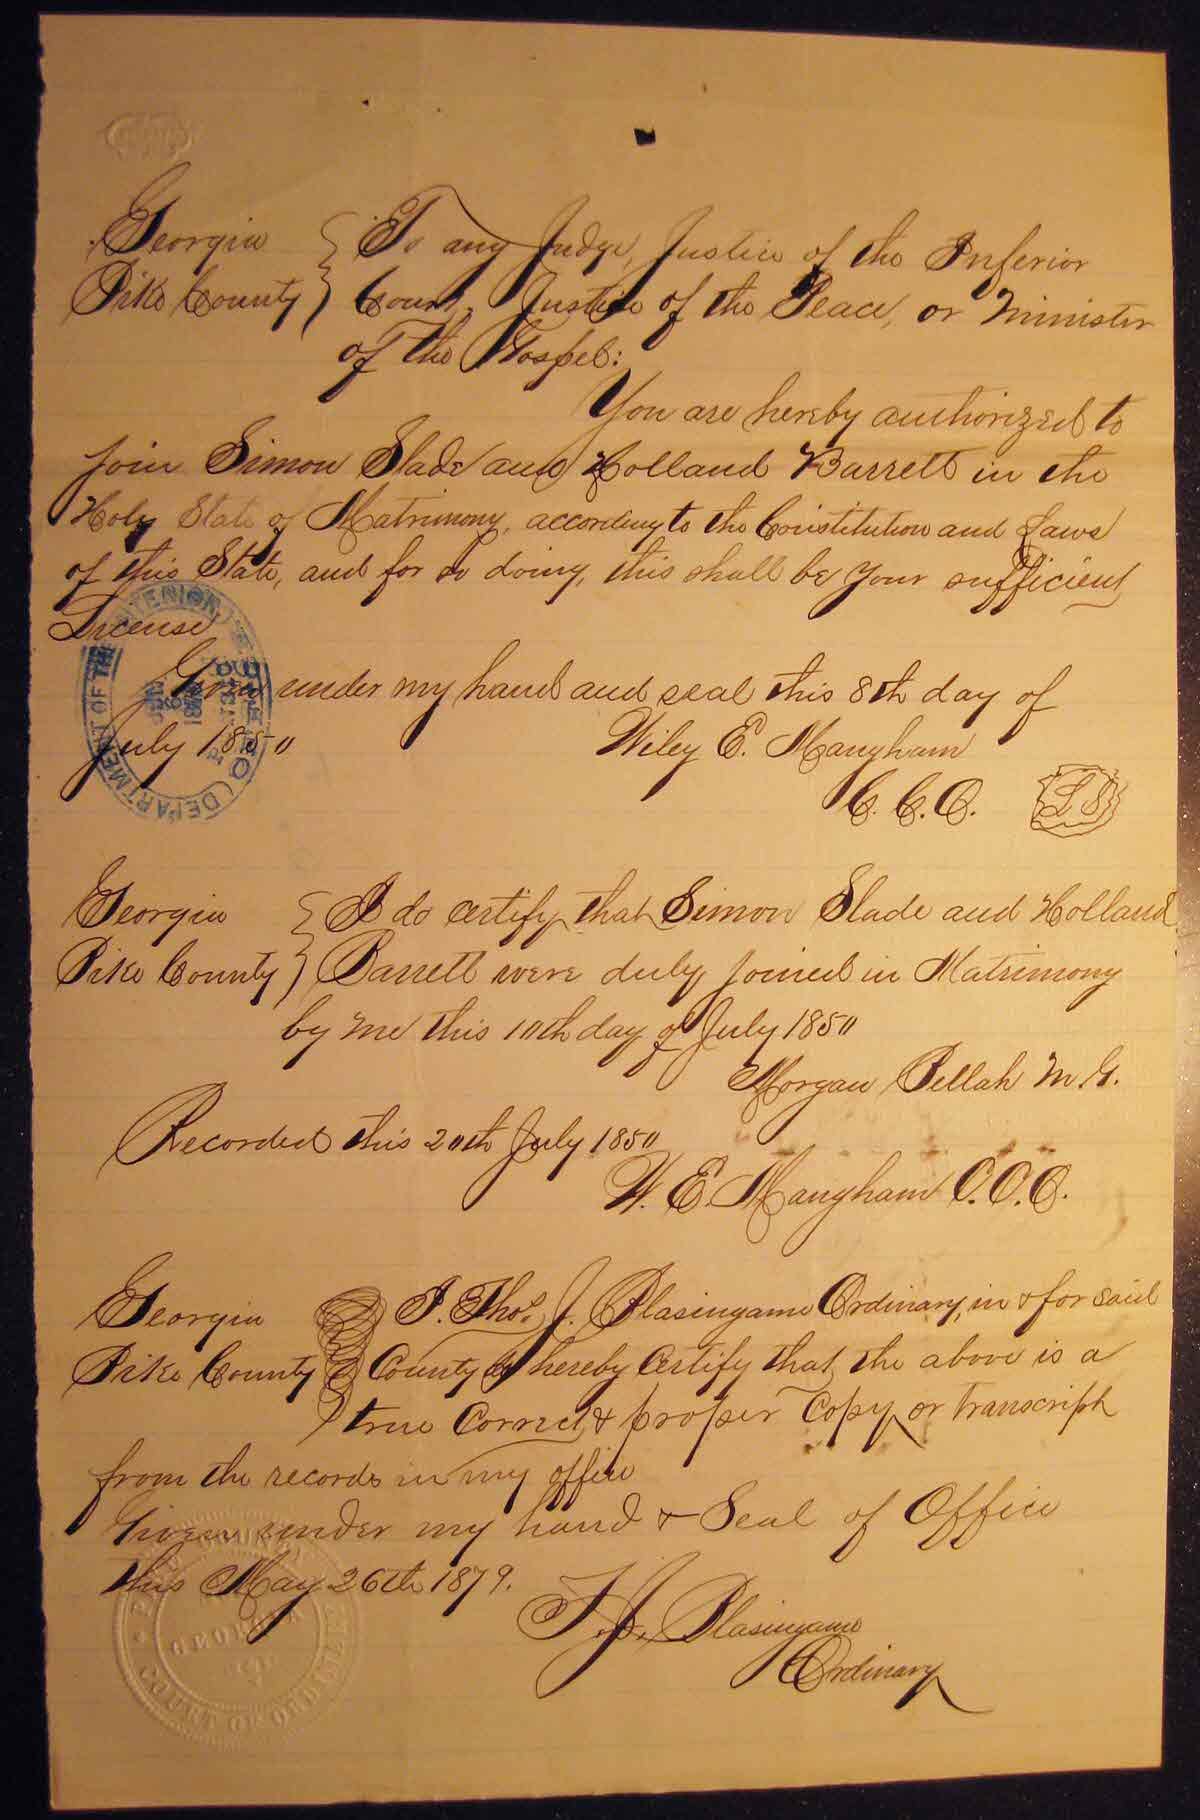 Georgia } To any Judge, Justice of the Inferior
Pike County } Court, Justice of the Peace, or Minister
of The Gospel:
You are hereby authorized to
join Simon Slade and Holland Barrett in the
Holy State of Matrimony, according to the Constitution and Laws
of this State, and for so doing, this shall be your sufficient
License
Given under my hand and seal this 8th day of
July 1850
Wiley E. Mangham
C. C. O.
L S
Georgia } I do certify that Simon Slade and Holland
Pike County } Barrett were duly joined in Matrimony
by me this 10th day of July 1850
Morgan Bellah M. G.
Recorded this 20th July 1850
W. E. Mangham C.C.O.
Georgia } I. Thos. J. Blasingame Ordinary, in & for said
Pike County } County do hereby Certify that the above is a
true Correct & proper Copy or transcript
from the records in my office
Given under my hand & Seal of Office
this May 26th 1879.
T. J. Blasingame
Ordinary
DEPARTMENT OF THE INTERIOR
GEORGIA
COURT OF ORDINARY